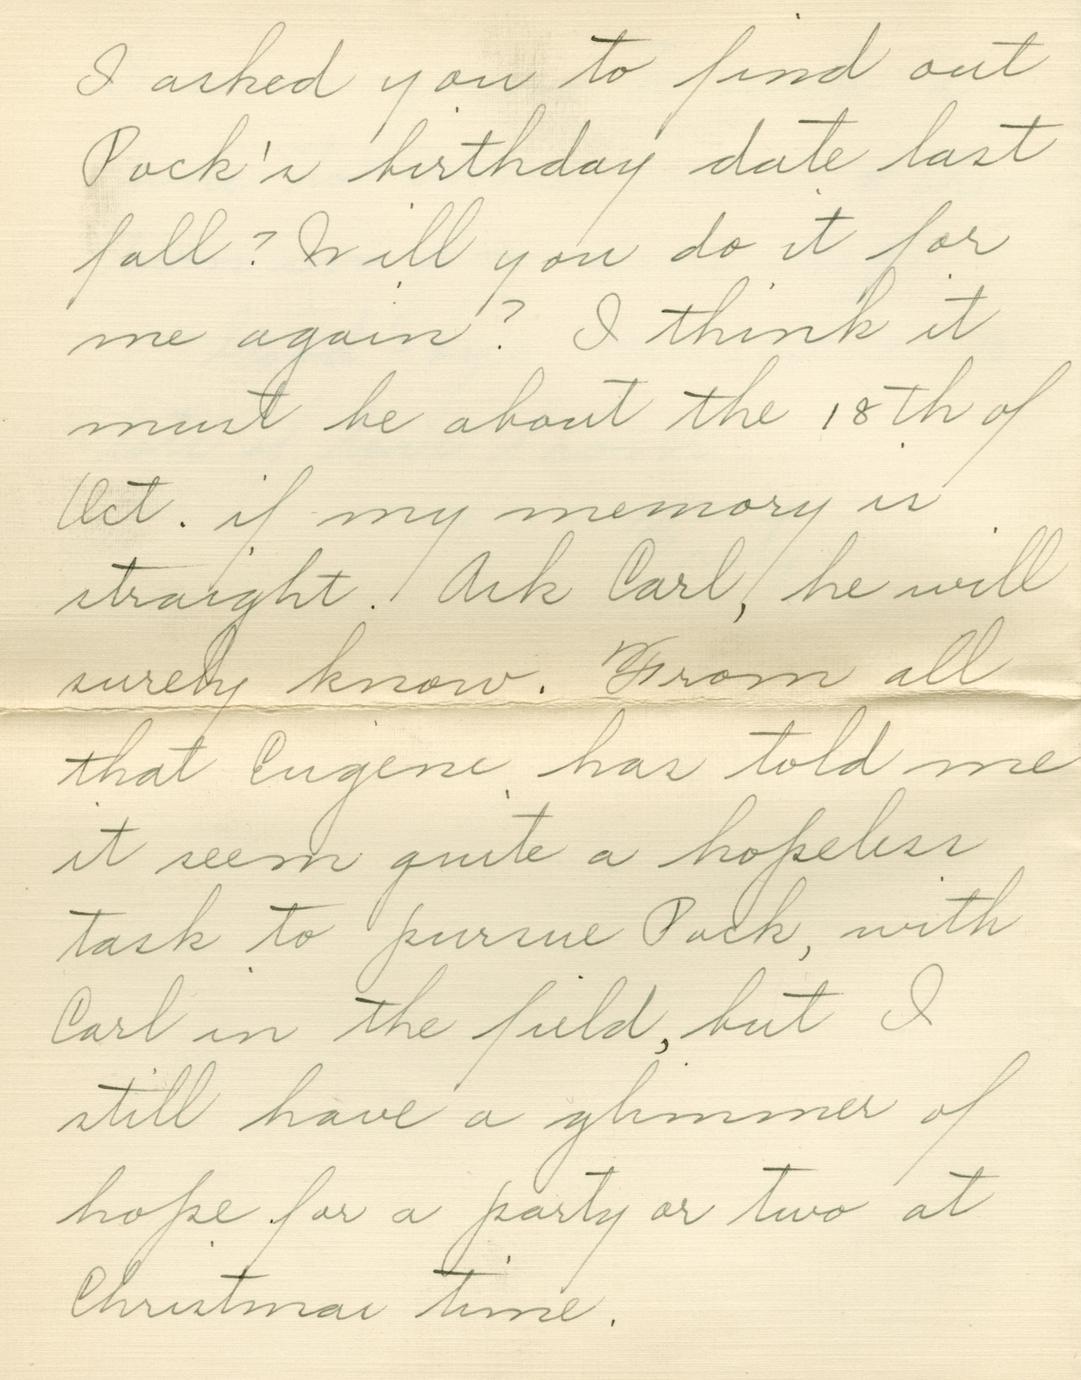 I asked you to find out
Pock's birthday date last
fall? Will you do it for
me again? I think it
must be about the 18th of
Oct. if my memory is
straight. Ask Carl, he will
surely know. From all
that Eugene has told me
it seem quite a hopeless
task to pursue Pock, with
Carl in the field, but I
still have a glimmer of
hope for a party or two at
Christmas time.